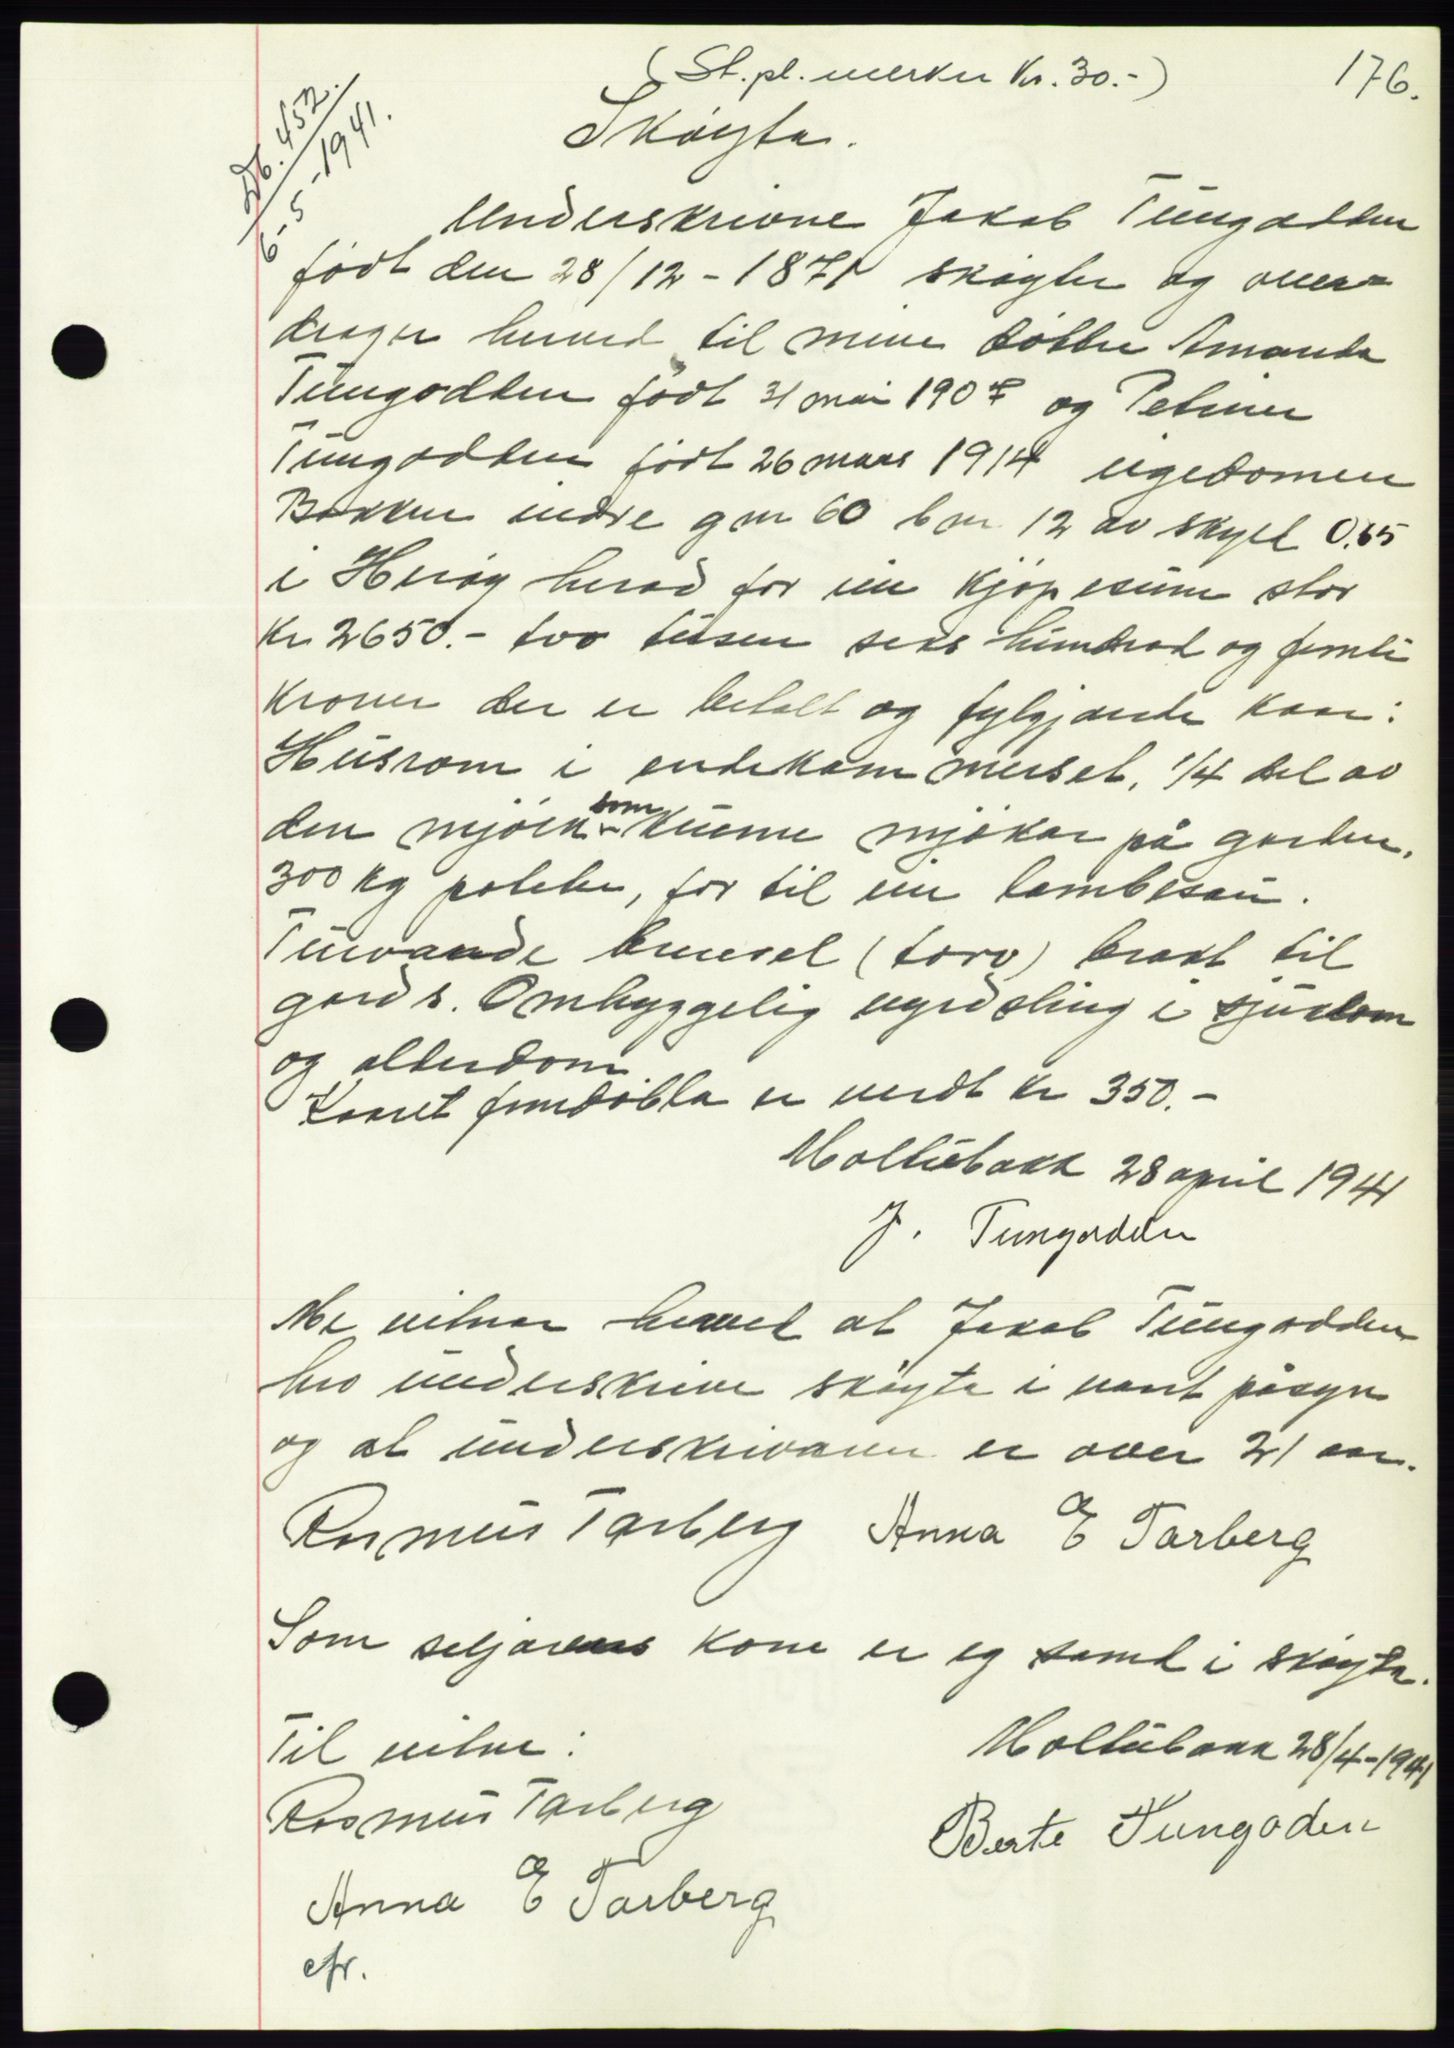 (St.pl. merker kr. 30.-)
176.
Db. 452.
6-5-1941.
Skøyte.
Underskrivne Jakob Tungodden
født den 28/12-1871 skøyter og over-
drager herved til mine døttre Amanda
Tungodden født 31 mai 1907 og Petrine
Tungodden født 26 mars 1914 eigedomen
Bakken indre gnr 60 bnr 12 av skyld 0.65
i Herøy herad for ein kjøpesum stor
kr 2650.- tvo tusen seks hundrad og femti
kroner der er betalt og fylgjande kaar:
Husrom i endekammerset, 1/4 del av
den mjølk som kuene mjølkar på garden.
300 kg poteter, for til ein lambesau.
Turvande brensel (torv) brakt til
gards. Omhyggelig røgdsling i sjukdom
og alderdom
Kaaret femdobla er verdt kr 350.-
Moltubakk 28 april 1941
J. Tungodden
Me vitnar herved at Jakob Tungodden
hev underskrive skøyta i vaart påsyn
og at underskrivaren er over 21 aar.
Rasmus Tarberg Anna E Tarberg
Som seljarens kone er eg samd i skøyta.
Til vitne:
Moltubakk 28/4-1941
Rasmus Tarberg
Berte Tungoden
Anna E Tarberg